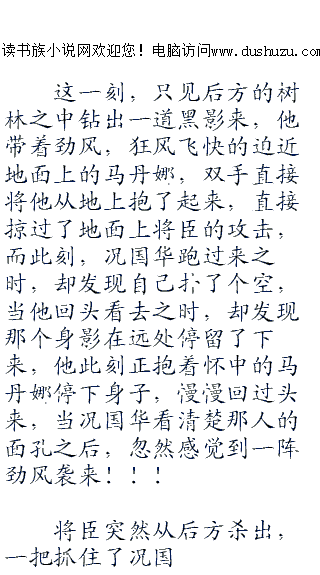 读书族小说网欢迎您！电脑访问www.dushuzu.com
这一刻，只见后方的树
林之中钻出一道黑影来，他
带着劲风，狂风飞快的迫近
地面上的马丹娜，双手直接
将他从地上抱了起来，直接
掠过了地面上将臣的攻击，
而此刻，况国华跑过来之
时，却发现自己扑了个空，
当他回头看去之时，却发现
那个身影在远处停留了下
来，他此刻正抱着怀中的马
丹娜停下身子，慢慢回过头
来，当况国华看清楚那人的
面孔之后，忽然感觉到一阵
劲风袭来！！！
将臣突然从后方杀出，
一把抓住了况国